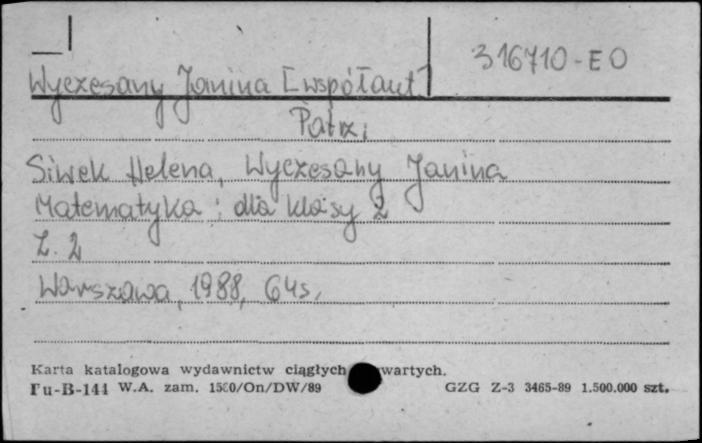 316710-EO
Wyczesany Janina [współaut]
Patrz:
Siwek Helena, Wyczesany Janina
Matematyka : dla klasy 2
Z. 2
Warszawa, 1988, 64 s.
Karta katalogowa wydawnictw ciągłych wartych.
Pu-B-144 W.A. zam. 1500/On/DW/89 GZG Z-3 3465-89 1.500.000 szt.